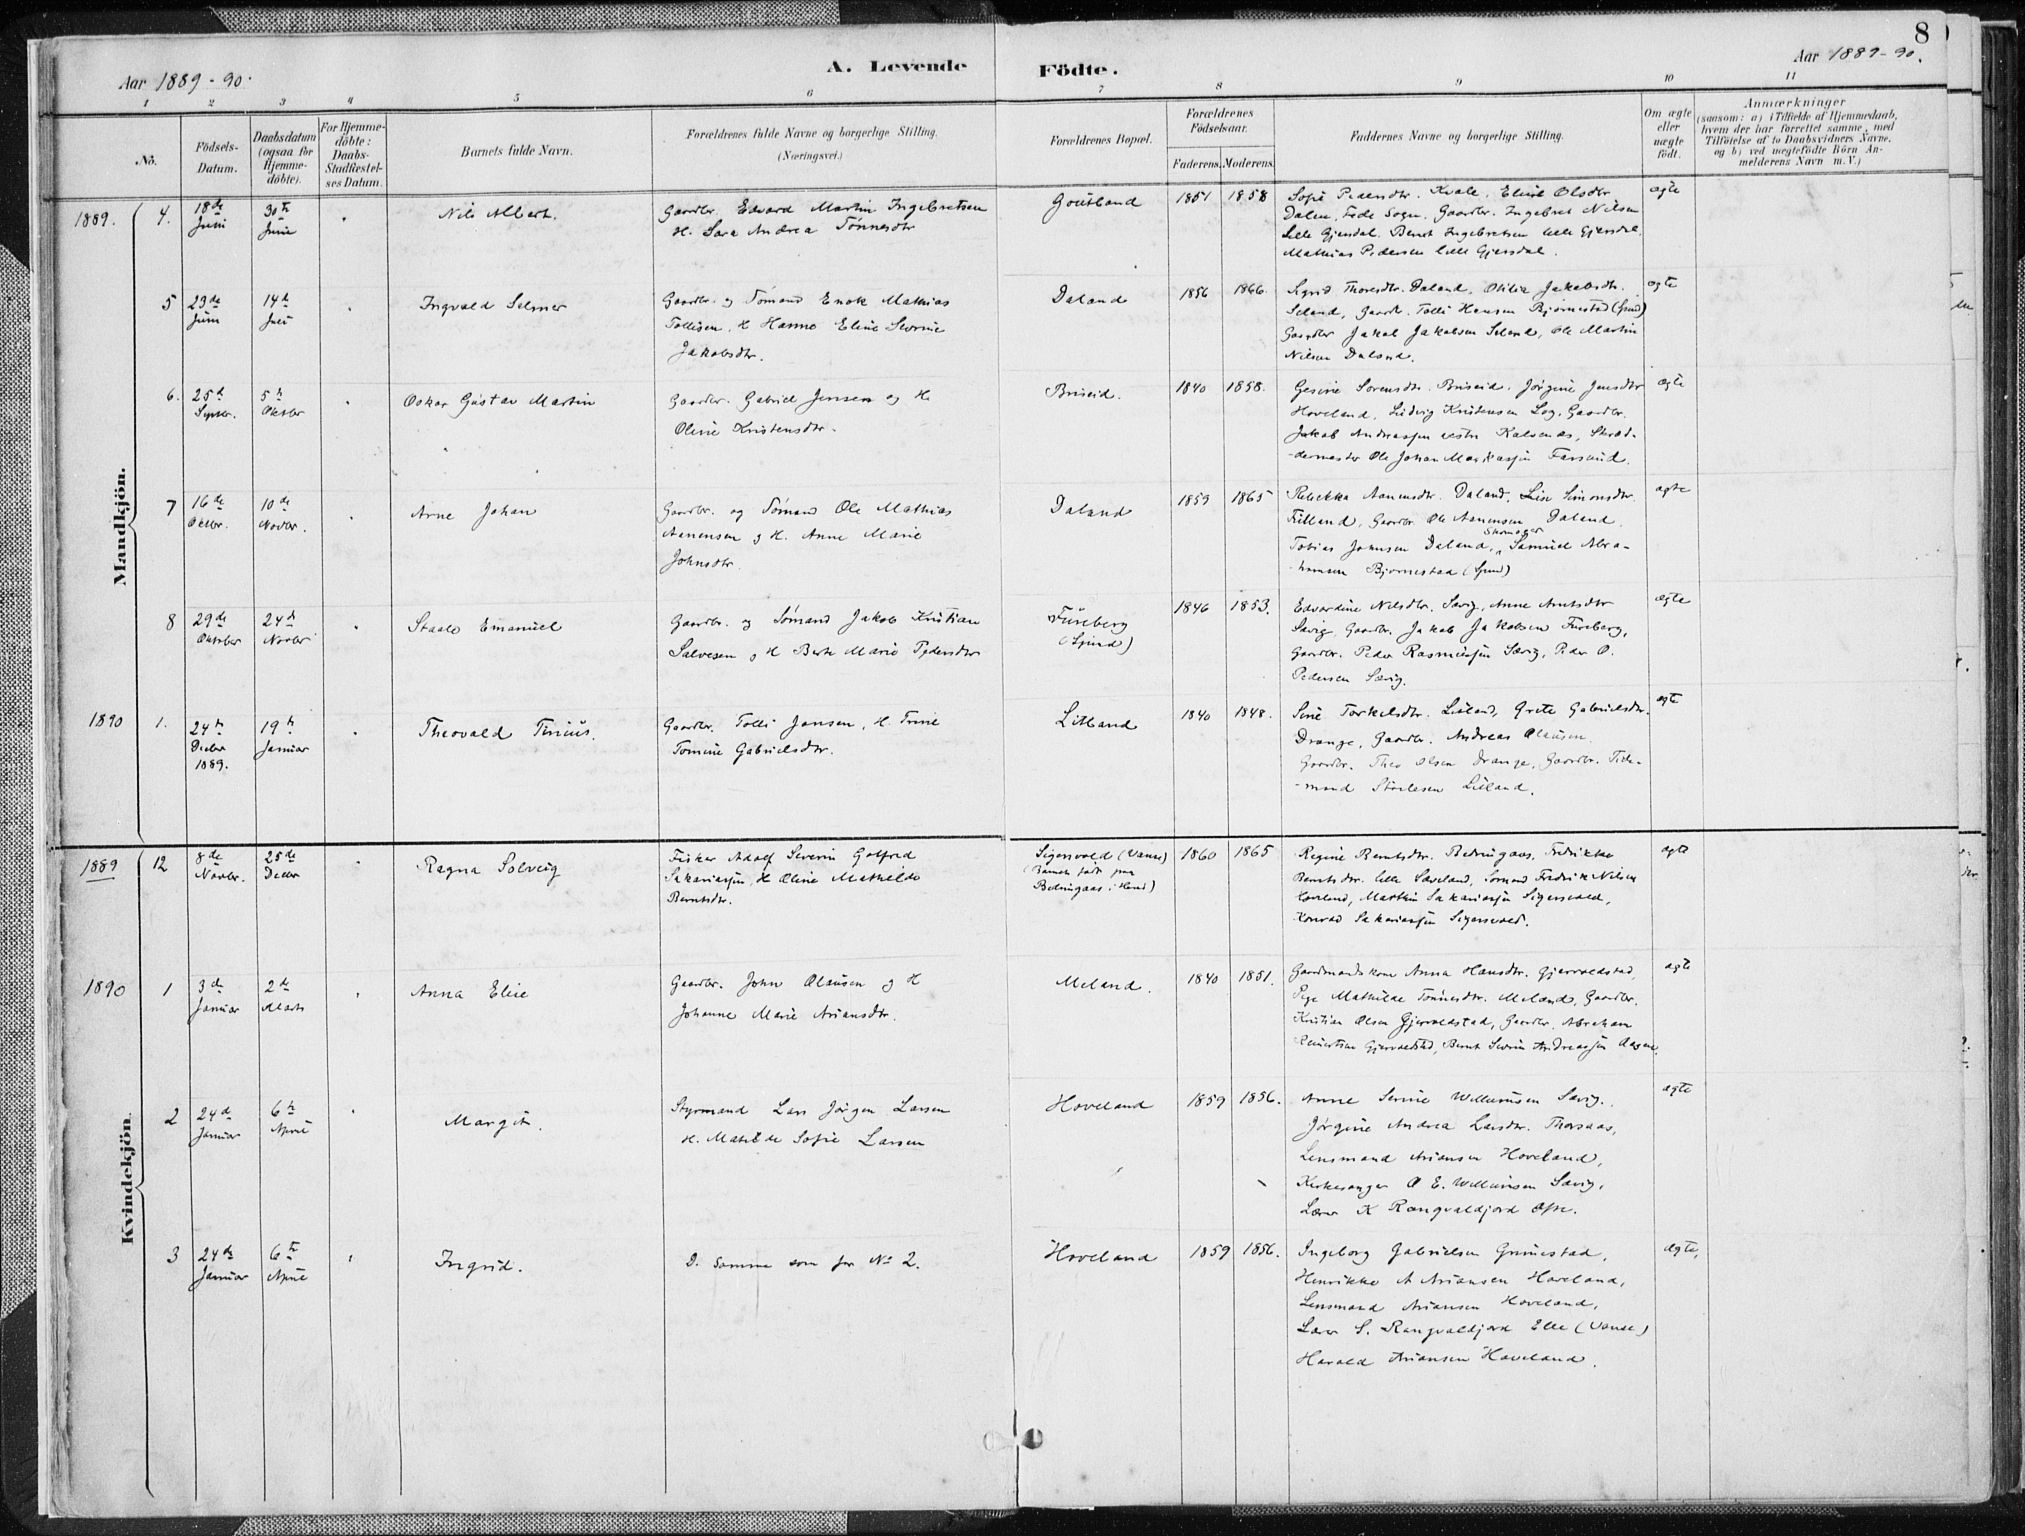 8
Aar 1889-90.
A. Levende Födte.
Aar 1889-90.
1 2 3 4 5 6 7 8 9 10 11
No.
Födsels-
Datum.
Daabsdatum
(ogsaa for
Hjemme-
döbte).
For Hjemme-
döbte:
Daabs-
Stadfæstel-
ses Datum.
Barnets fulde Navn.
Forældrenes fulde Navne og borgerlige Stilling.
(Næringsvei.)
Forældrenes Bopæl.
Forældrenes
Födselsaar.
Faderens. Moderens.
Faddernes Navne og borgerlige Stilling.
Om ægte
eller
uægte
födt.
Anmærkninger
(saasom: a) i Tilfælde af Hjemmedaab,
hvem der har forrettet samme, med
Tilföielse af to Daabsvidners Navne,
og b) ved uægtefödte Börn An-
melderens Navn m. V.)
Mandkjön.
1889.
4. 18de Juni
30te Juni
Nils Albert.
Gaardbr. Edvard Martin Ingebretsen
H. Sara Andrea Tönnesdtr
1851 1858
Sofie Pedersdtr. Kvale, Eline Olsdtr
Dalen, Fede Sogn, Gaardbr. Ingebret Nilsen
Lille Gjersdal. Bernt Ingebretsen lille Gjersdal.
Mathias Pedersen lille Gjersdal.
ægte
5 23de Juni
14de Juli
Ingvald Selmer
Gaardbr. og Sömand Enok Mathias
Tollisen, H Hanne Eline Severine
Jakobsdtr.
Daland
1856 1866.
Sigrid Thoresdtr. Daland, Otilie Jakobsdtr.
Seland, Gaardb. Tolli Hansen Bjørnestad (Spind)
Gaardbr Jakob Jakobsen Seland, Ole Martin
Nilsen Daland.
ægte
6. 25de Septbr.
5te Oktbr
Oskar Gustav Martin
Gaardbr. Gabriel Jensen og H.
Oline Kristensdtr.
Briseid.
1840 1858.
Gesine Sorensdtr. Briseid. Jörgine Jensdtr
Hoveland, Ludvig Kristensen Log, Gaardbr.
Jakob Andreassen vestre Kalvenes, Skræd-
-dermester Ole Johan Markussen Farsund.
ægte
7 16de Oktbr.
10de Novbr.
Arne Johan
Gaardbr. og Sömand Ole Mathias
Aanensen og H. Anne Marie
Johnsdtr.
Daland
1859 1865
Rebekka Aanensdtr. Daland, Lise Simonsdtr.
Gaardbr. Ole Aanensen Daland,
Tobias Johnsen Daland, Skomager Samuel Abra-
-hamsen Bjørnestad (Spind)
ægte
8 29de Oktober
24de Novbr
Staale Emanuel
Gaardbr. og Sömand Jakob Kristian
Salvesen og H Berte Marie Pedersdtr
Fureberg
(Spind)
1846 1853.
Edvardine Nilsdtr. Sævig, Anne Arntsdtr
Sævig, Gaardbr. Jakob Jakobsen Fureberg,
Gaardbr. Peder Rasmussen Sævig, Peder O.
Pedersen Sævig.
ægte
1890 1.
24de Decbr 1889.
19de Januar
Theovald Tinius.
Gaardbr. Tolli Jansen, H. Trine
Tomine Gabrielsdtr.
Litland
1840 1848.
Sine Torkelsdtr. Litland, Grete Gabrielsdtr.
Drange, Gaardbr. Andreas Olausen
Gaardbr. Theo Olsen Drange, Gaardbr. Tide-
-mand Stoelesen Litland.
ægte
Kvindekjön.
1889
12 8de Novbr.
25de Decbr
Ragna Solveig
Fisker Adolf Severin Gotfred
Sakariassen, H Oline Mathilde
Berntsdtr.
Sigersvold (Vanse)
(Barnet födt paa
Bedringaas i Herad)
1860 1865
Regine Berntsdtr. Bedringaas, Fredrikke
Berntsdtr. lille Sæveland, Sömand Fredrik Nilsen
Hoveland, Martin Sakariassen Sigersvold,
Konrad Sakariassen Sigersvold.
ægte
1890
1 3de Januar
2de Marts
Anna Elise
Gaardbr. John Olausen og H
Johanne Marie Ariansdtr.
Meland.
1840 1851.
Gaardmandskone Anna Hansdtr. Gjervoldstad,
Pige Mathilde Tönnesdtr. Meland, Gaardbr.
Kristian Olsen Gjervoldstad, Gaardbr. Abraham
Reinertsen Gjervoldstad, Bernt Severin Andreassen
ægte
2 24de Januar
6te April
Margit.
Styrmand Lars Jörgen Larsen
H. Matilde Sofie Larsen
Hoveland
1859 1856.
Anne Serine Willumsen Sævig.
Jörgine Andrea Larsdtr. Thorsaas,
Lensmand Ariansen Hoveland,
Kirkesanger O E. Willumsen Sævig,
Lærer K Rangvaldjord
ægte
3 24de Januar
6te April
Ingrid.
D. samme som for No 2.
Hoveland
1859 1856.
Ingeborg Gabrielsen Grimestad,
Henrikke A Ariansen Hoveland,
Lensmand Ariansen Hoveland,
Lærer S. Rangvaldjord Elle (Vanse)
Harald Ariansen Hoveland.
ægte.